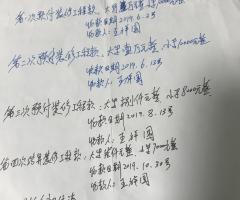 第一次预付装修工程款,大写壹万元整 小写10000元整
收款日期2019.6.2号
收款人:王祥国
第二次预付装修工程款,大写壹万元整,小写10000元整
收款日期2019.6.12号
收款人:王祥国
第三次预付装修工程款:大写捌仟元整 小写8000元整
收款日期2019.8.13号
收款人:王祥国
第四次 装修工程款:大写 仟元整,小写7000元整
收款日期2019.10.30号
收款人:王祥国